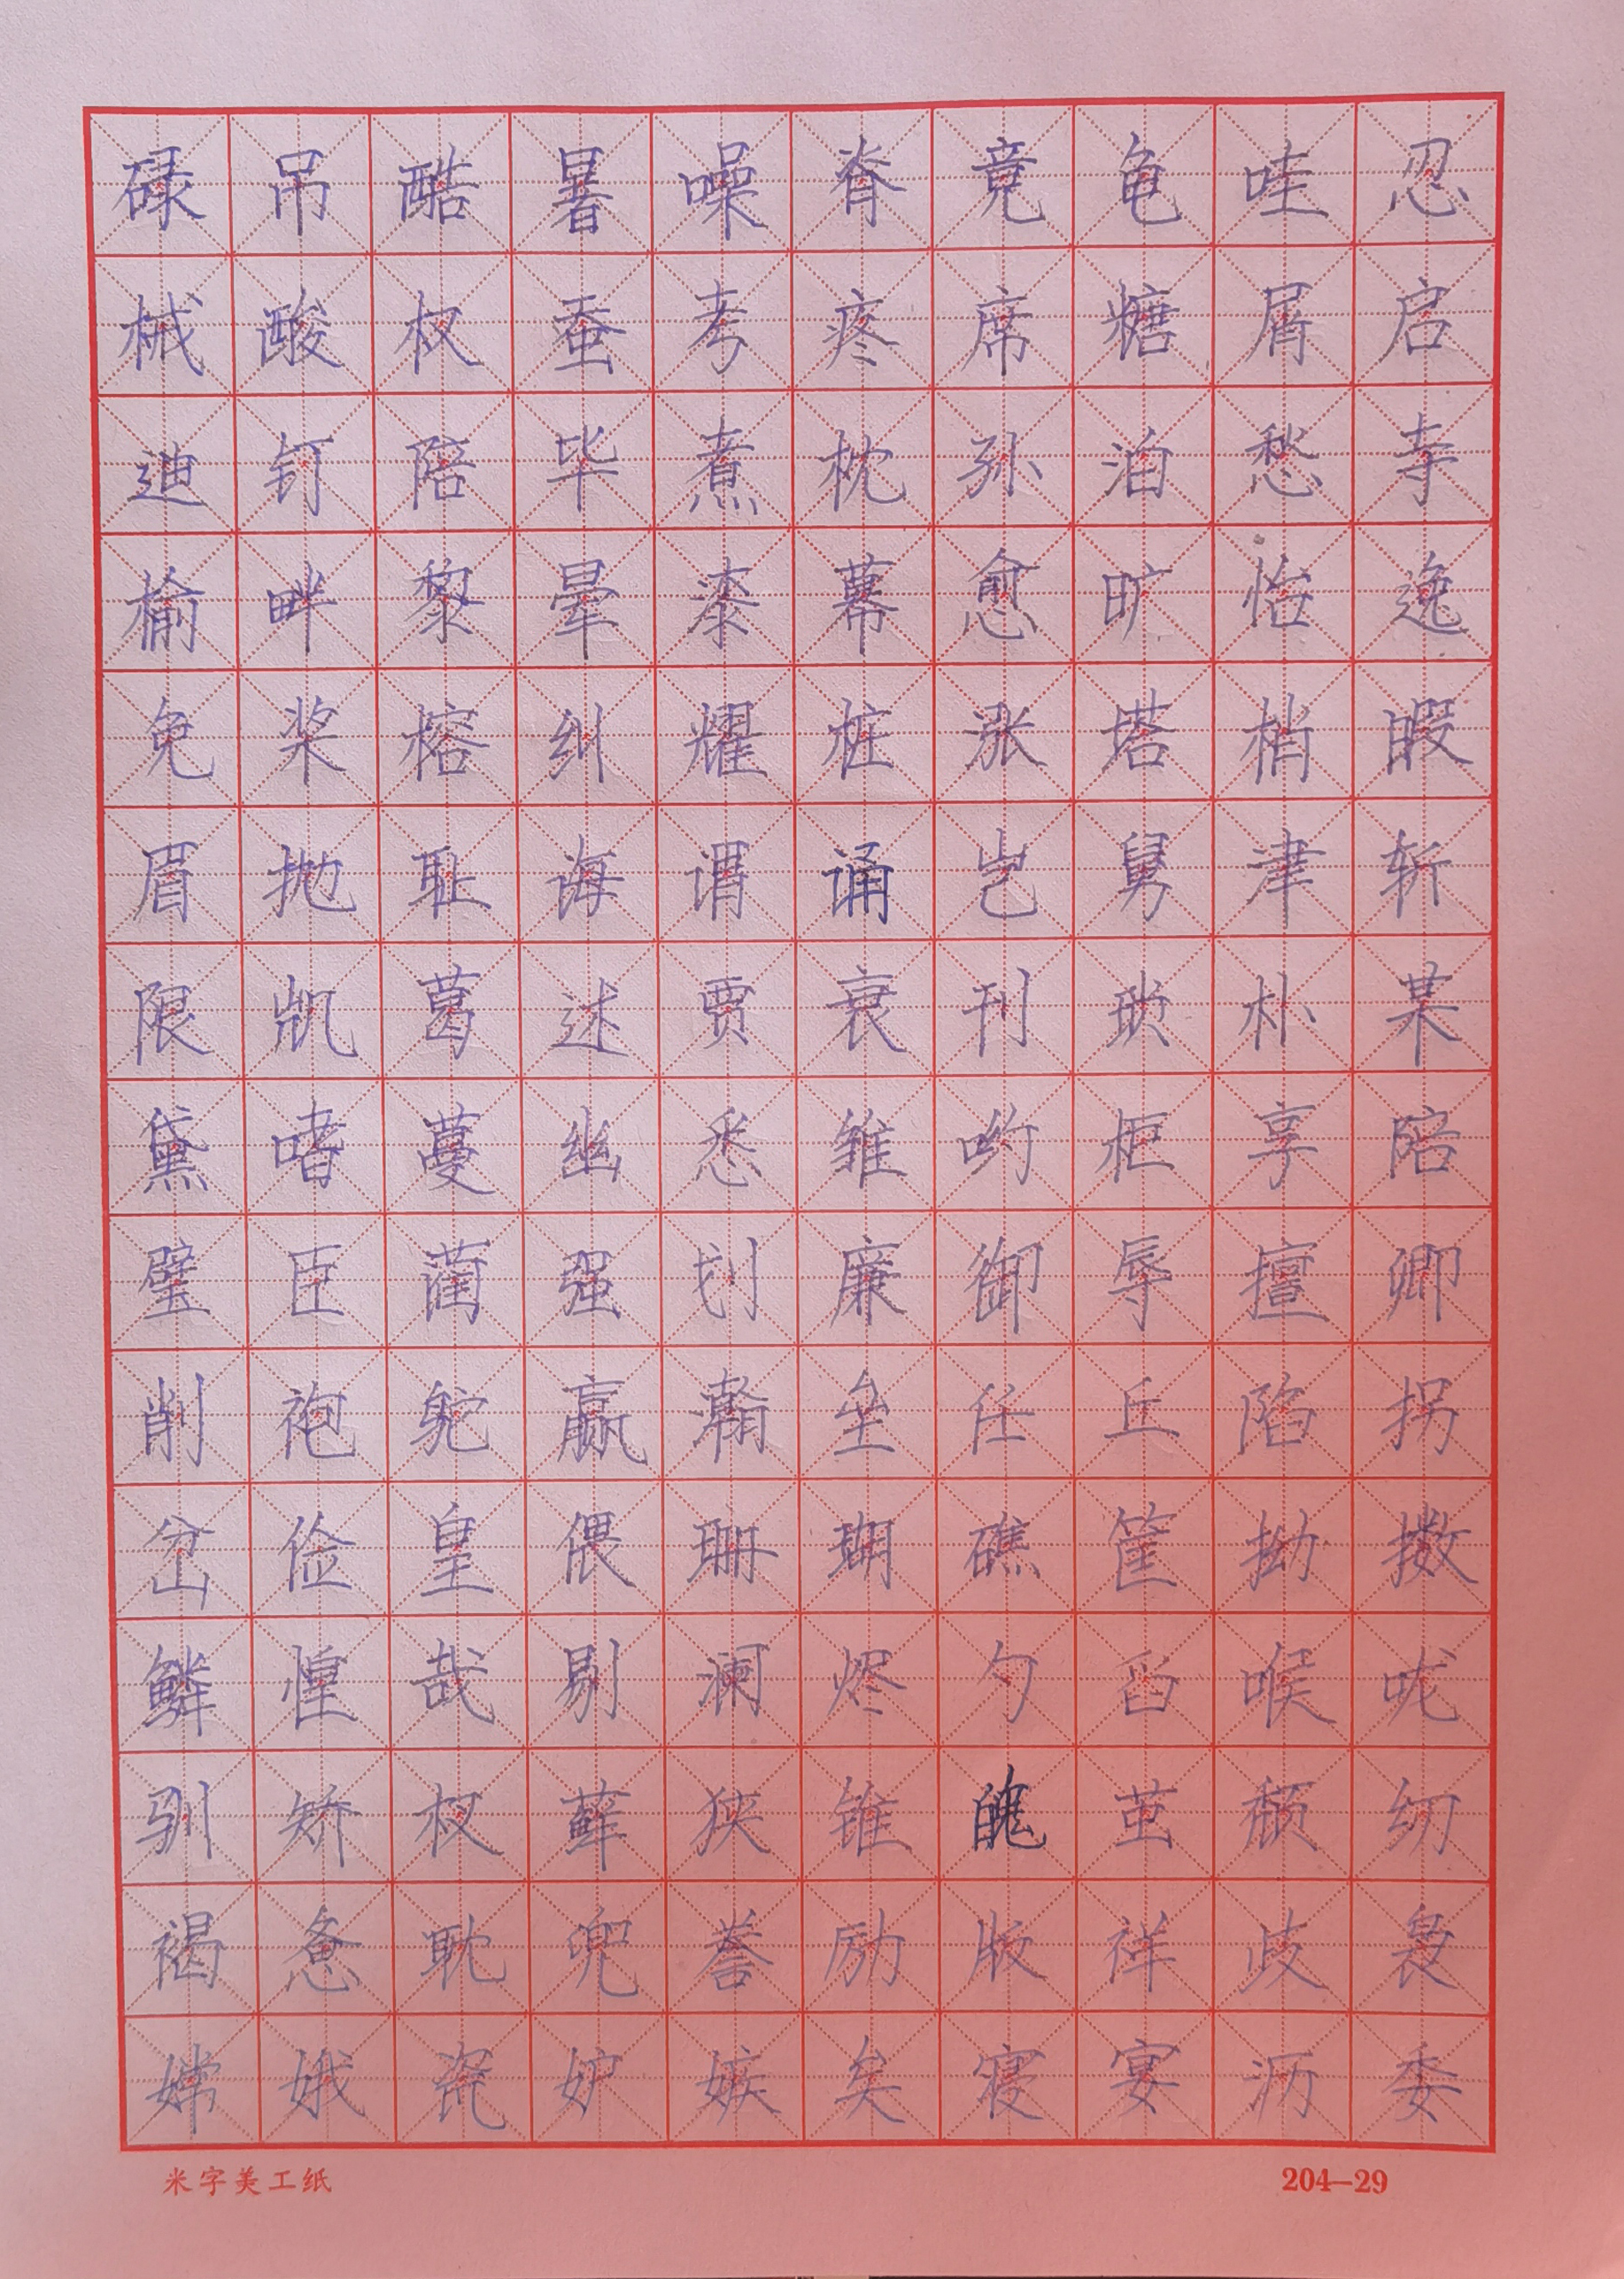 碌吊酷暑噪脊竟龟哇忍
械酸权蚕考疼席糖屑启
迪钉陪毕煮枕孙泊愁寺
榆畔黎晕漆幕愈旷怡逸
免桨榕纠耀桩涨塔梢暇
眉抛耻诲谓诵岂舅津斩
限凯葛述贾衰刊琐朴某
黛嗜蔓幽悉雏哟柜享陪
璧臣蔺强划廉御辱擅卿
削袍鸵赢瀚垒任丘陷拐
岔俭皇偎珊瑚礁筐拗撒
鳞惶哉剔澜烬勺舀喉咙
驯矫权藓狭锥魄茁颓纫
褐惫耽兜誊励版祥歧袅
嫦娥瓷妒嫉矣寝宴沥委
米字美工纸 204—29